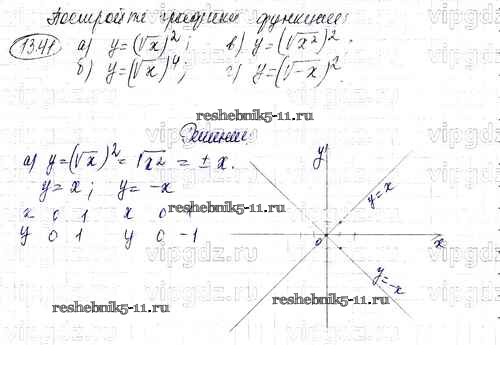 Постройте графики функций:
13.41 а) y=(√x)²; в) y=(√x²)²;
б) y=(√x)⁴; г) y=(√-x)².
reshebnik5-11.ru
Решение
а) y=(√x)² = √x² = ± x.
y = x; y = -x
x 0 1 x 0 1
y 0 1 y 0 -1
y
y=x
0
x
y=-x
reshebnik5-11.ru
reshebnik5-11.ru
vipgdz.ru